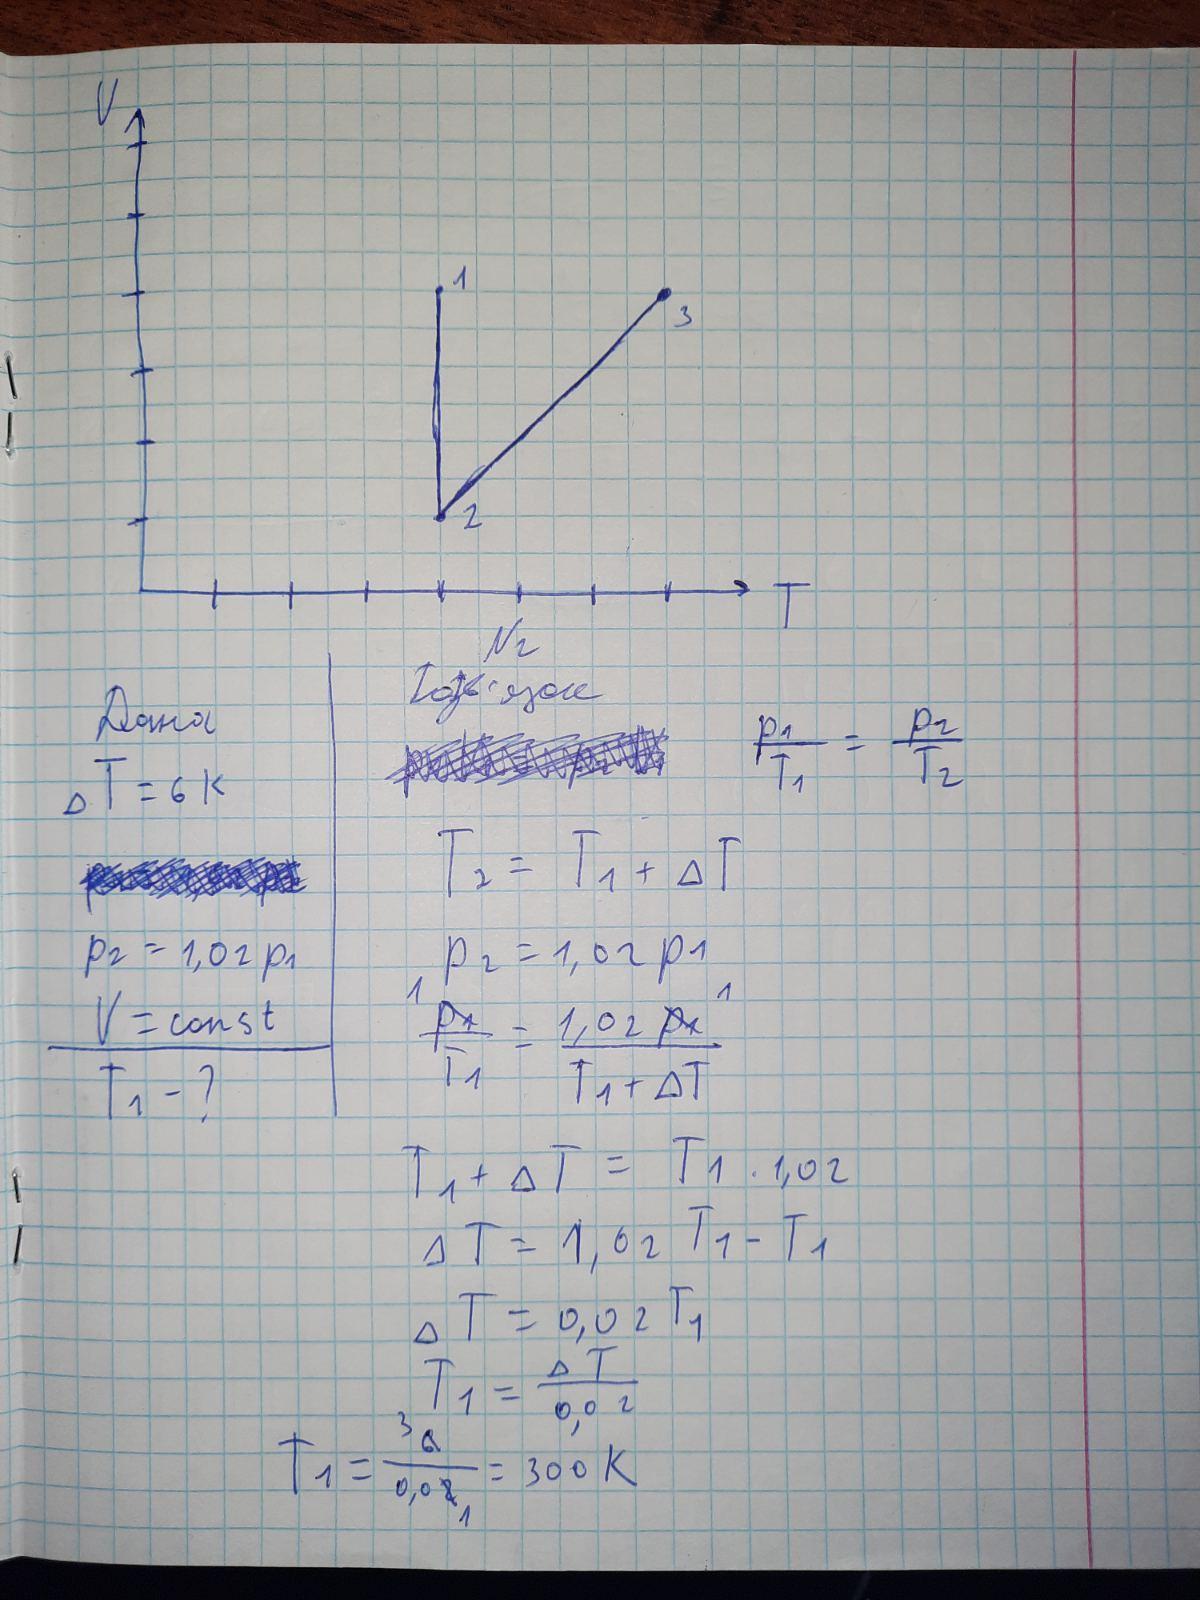 V
1
3
2
T
N2
Дано
ΔT = 6 K
p2 = 1,02 p1
V = const
T1 - ?
Розв'язок
p1/T1 = p2/T2
T2 = T1 + ΔT
p2 = 1,02 p1
1 p1/T1 = 1,02 p1/(T1 + ΔT) 1
T1 + ΔT = T1 · 1,02
ΔT = 1,02 T1 - T1
ΔT = 0,02 T1
T1 = ΔT/0,02
T1 = 3 6/0,02 1 = 300 K